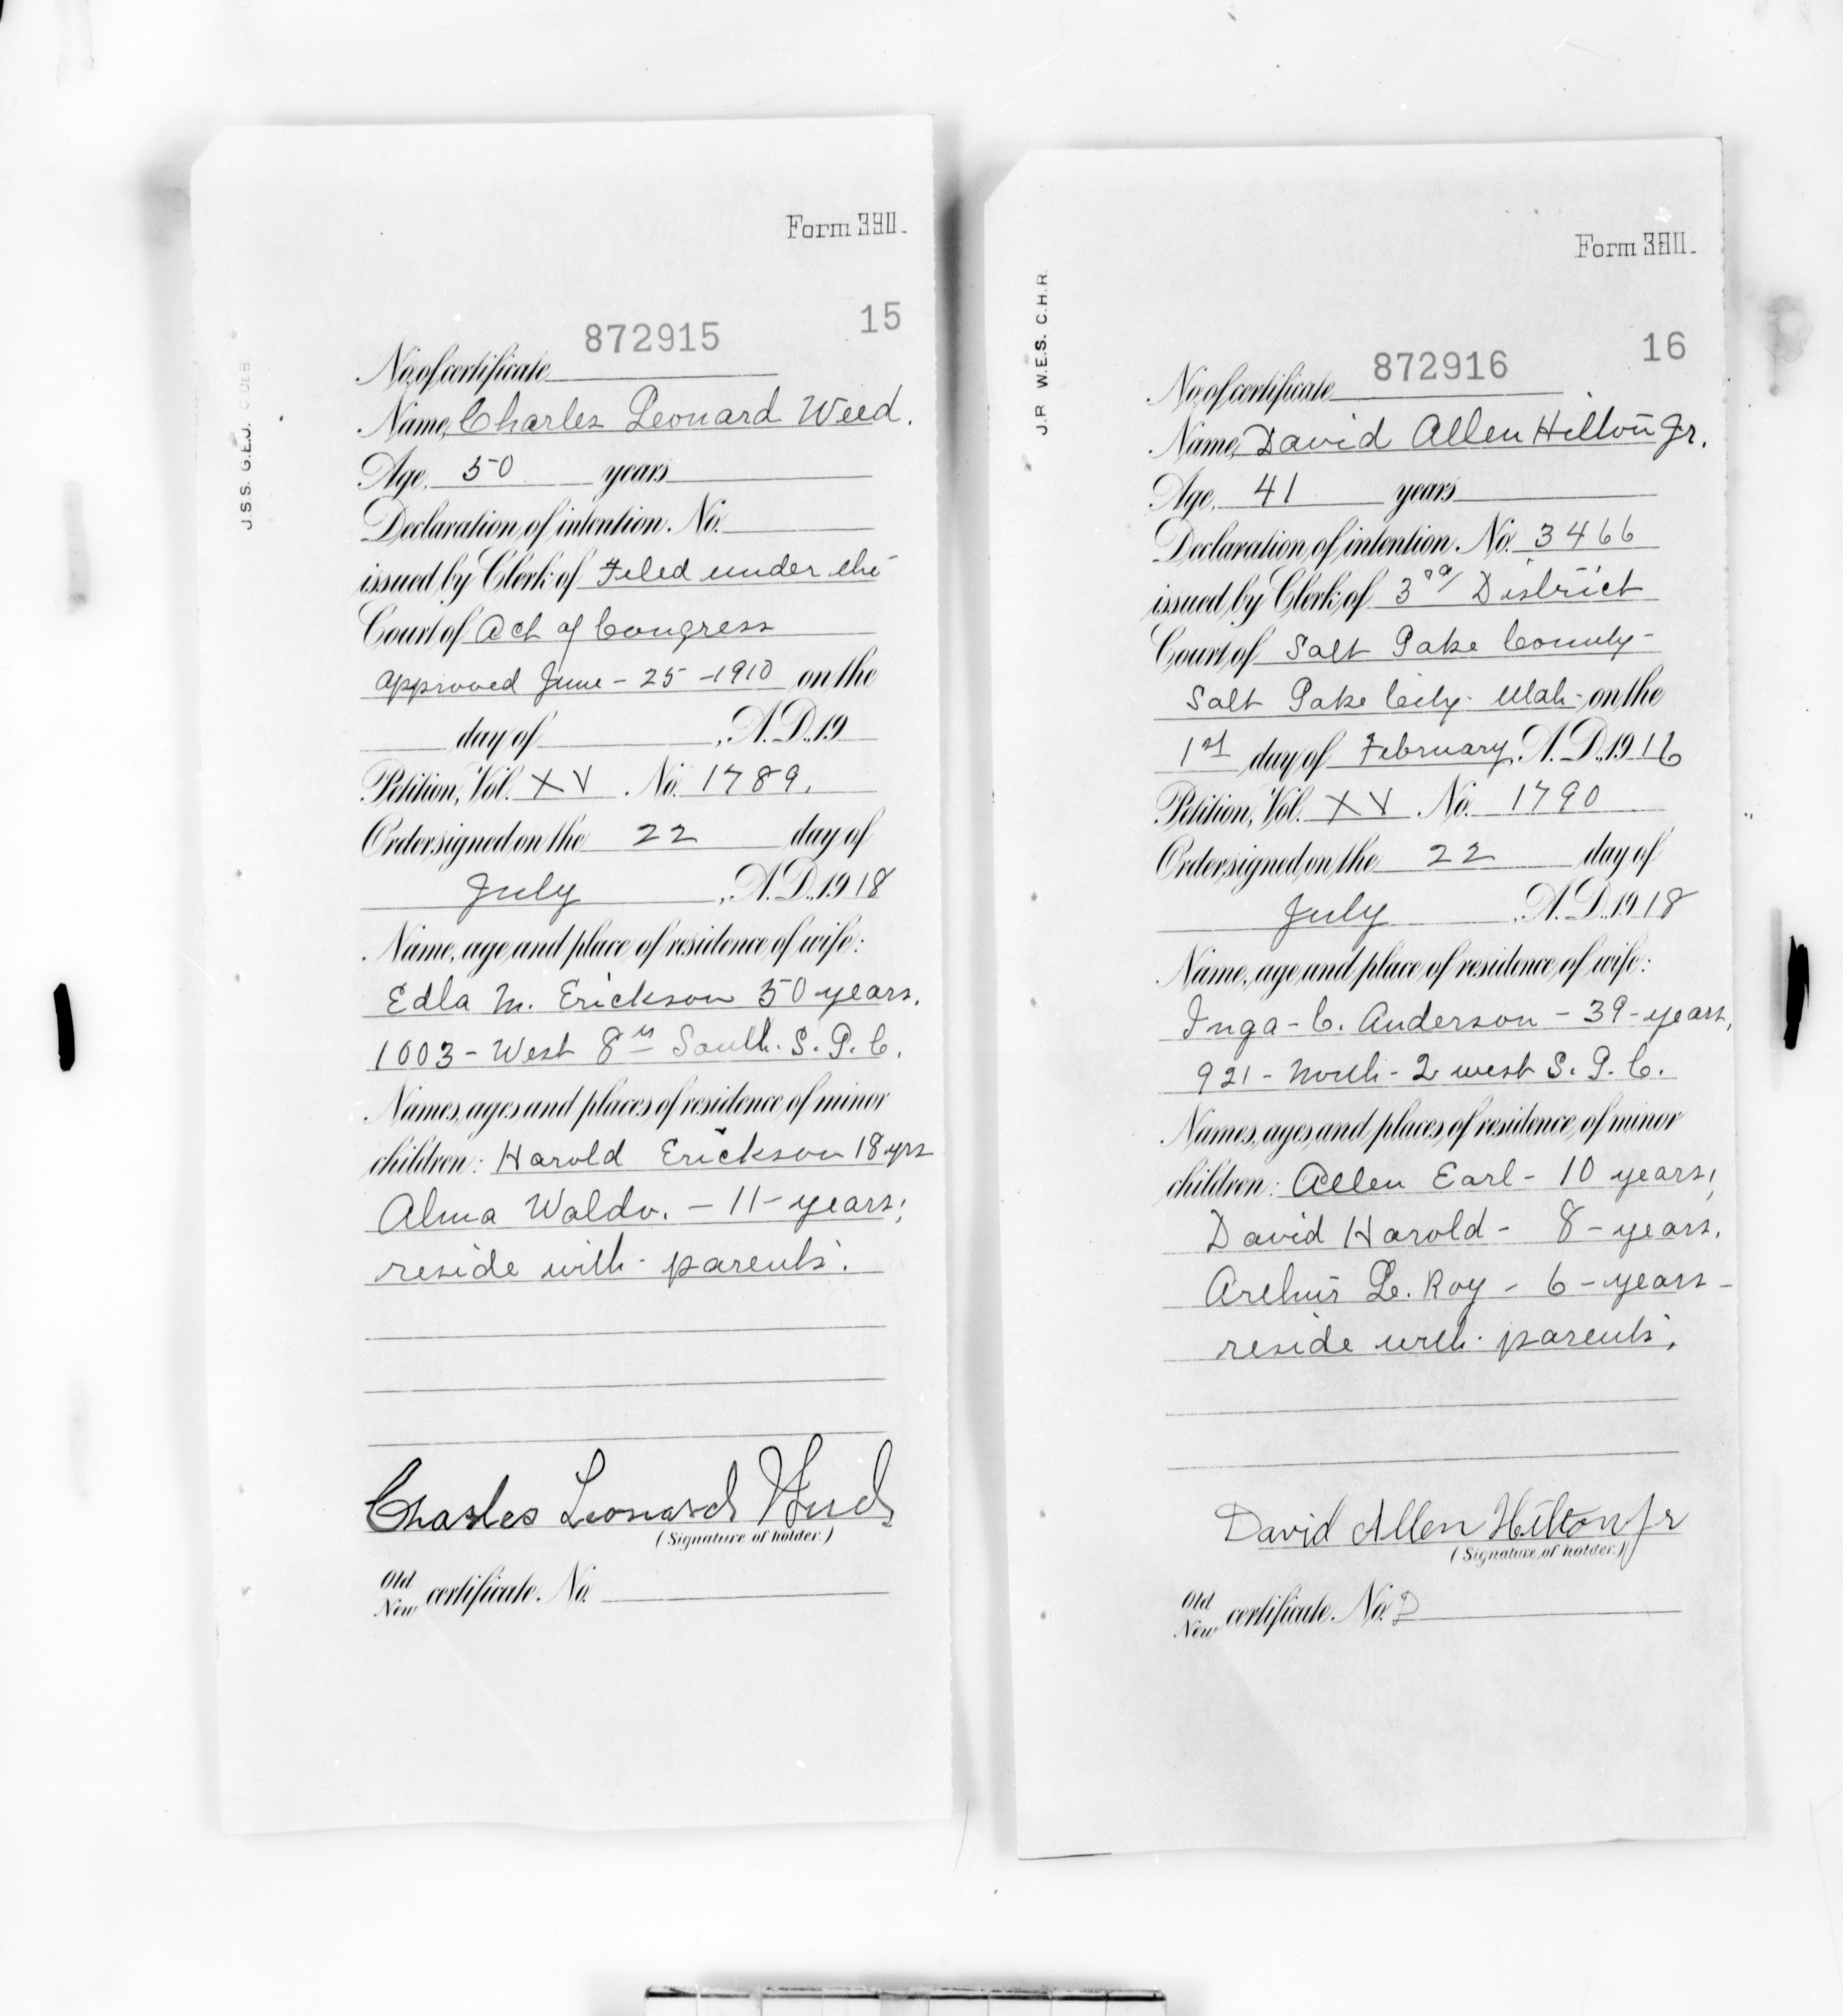 Form 330.
15
872915
No. of certificate
Name, Charles Leonard Weed.
Age, 50 years
Declaration of intention. No.
issued by Clerk of Filed under the
Court of Act of Congress
approved June - 25 - 1910 on the
day of , A.D. 19
Petition, Vol. XV . No. 1789.
Order signed on the 22 day of
July , A.D. 1918
Name, age and place of residence of wife:
Edla M. Erickson 50 years.
1003 - West 8th South. S. L. C.
Names, ages and places of residence of minor
children: Harold Erickson 18 yrs
Alma Waldo. - 11 - years;
reside with - parents.
Charles Leonard Weed
(Signature of holder.)
Old
New certificate. No.
J.S.S. G.E.J.
Form 330.
16
872916
No. of certificate
Name, David Allen Hilton Jr.
Age, 41 years
Declaration of intention. No. 3466
issued by Clerk of 3rd District
Court of Salt Lake County -
Salt Lake City - Utah - on the
1st day of February, A.D. 1916
Petition, Vol. XV . No. 1790
Order signed on the 22 day of
July , A.D. 1918
Name, age and place of residence of wife:
Inga - C. Anderson - 39 - years,
921 - North - 2 west S. L. C.
Names, ages and places of residence of minor
children: Allen Earl - 10 years,
David Harold - 8 - years.
Arthur Le. Roy - 6 - years -
reside with - parents.
David Allen Hilton Jr
(Signature of holder.)
Old
New certificate. No. D
J.R. W.E.S. C.H.R.